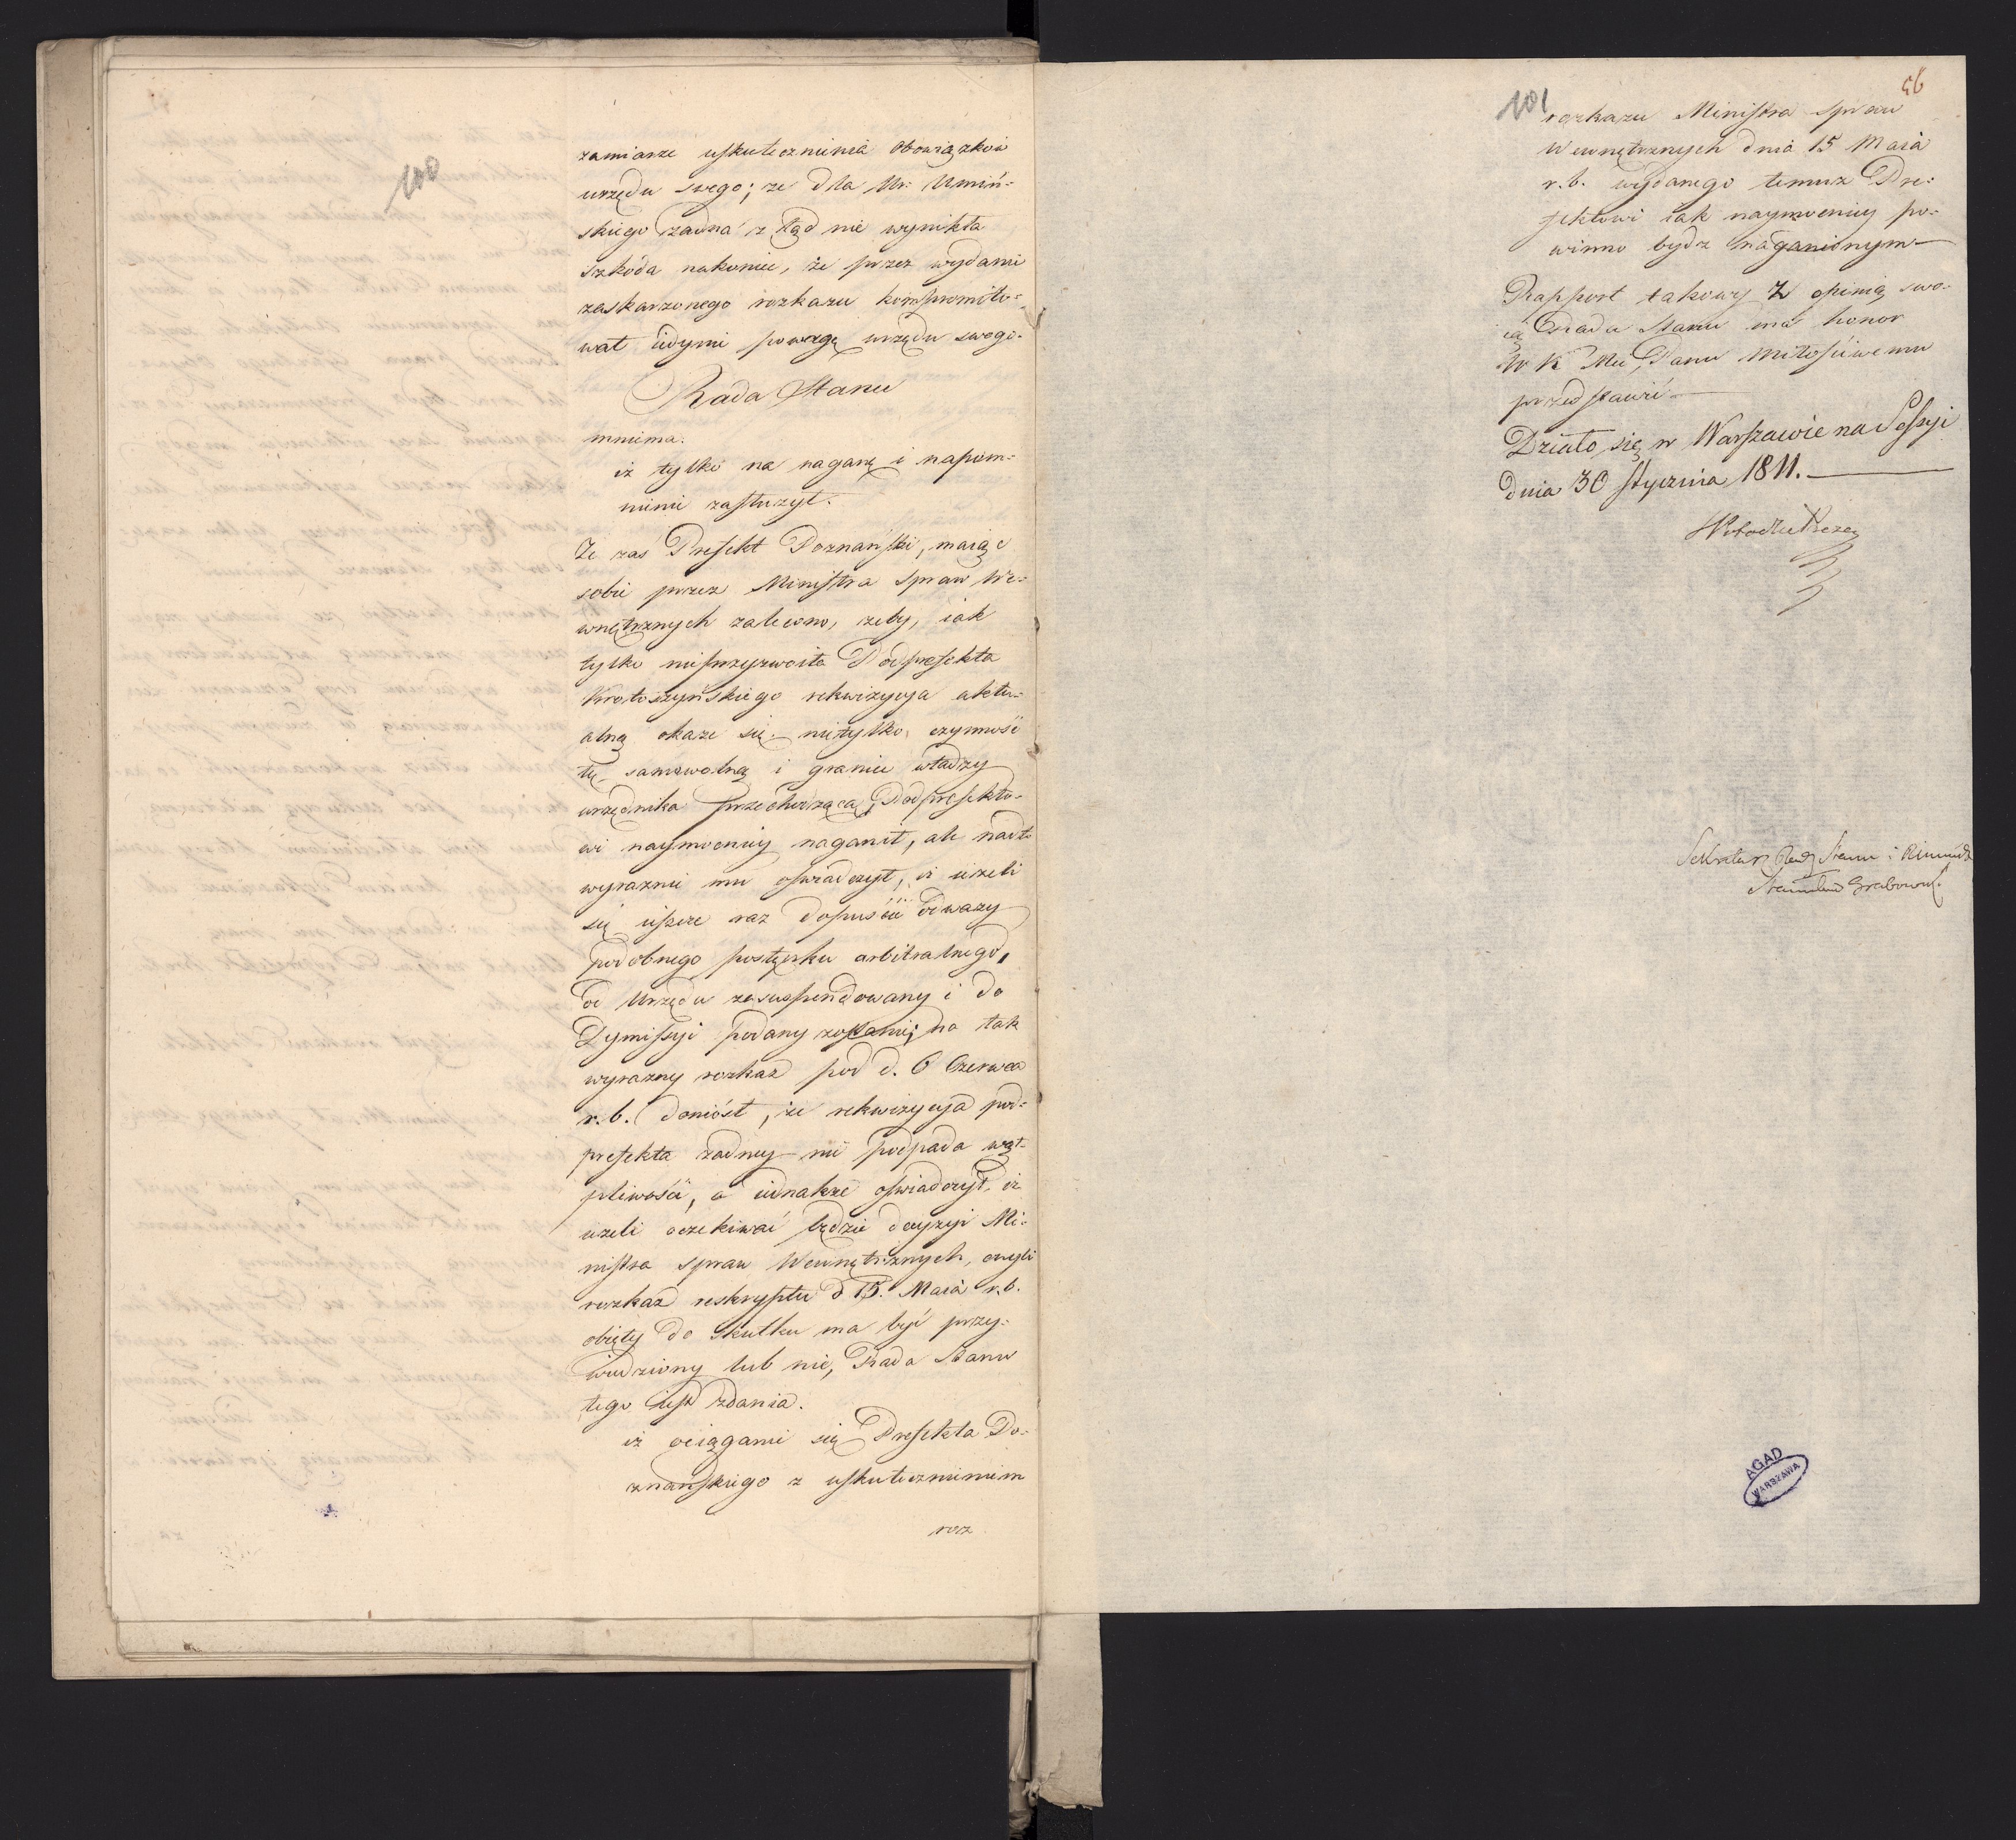 100
zamiarze uskutecznienia Obowiązków
urzędu swego; że dla Ur: Umiń-
skiego żadna z tąd nie wynikła
szkoda nakoniec, że przez wydanie
zaskarżonego rozkazu kompromito-
wał iedynie powagę urzędu swego.
Rada Stanu
mniema.
iż tylko na naganę i napom-
nienie zasłużył.
Że zaś Prefekt Poznański, maiąc
sobie przez Ministra Spraw We-
wnętrznych zalecono, żeby, iak
tylko nieprzyzwoita Podprefekta
Krotoszyńskiego rekwizycya aktu-
alną okaże się nietylko czynność
tę samowolną i granice władzy
urzędnika przechodzącą, Podprefekto-
wi naymocniey naganił, ale nadto
wyraznie mu oświadczył, iż ieżeli
się ieszcze raz dopuścić odważy
podobnego postępku arbitralnego,
od Urzędu zasuspendowany i do
Dymissyi podany zostanie; na tak
wyrazny rozkaz pod d. 6 Czerwca
r. b. doniósł, że rekwizycya pod-
prefekta żadney nie podpada wąt-
pliwości, a iednakże oświadczył, iż
ieżeli oczekiwać będzie decyzyi Mi-
nistra Spraw Wewnętrznych, czyli
rozkaz reskryptu d 15. Maia r. b.
obięty do skutku ma być przy-
wiedziony lub nie, Rada Stanu
tego iest zdania.
iż ociąganie się Prefekta Po-
znańskiego z uskutecznieniem
roz
101
56
rozkazu Ministra Spraw
Wewnętrznych dnia 15 Maia
r. b. wydanego temuż Pre-
fektowi iak naymocniey po-
winno bydz naganionym
Rapport takowy z opinią swo-
ią Rada Stanu ma honor
W K Mci, Panu Miłościwemu
przedstawić
Działo się w Warszawie na Sessyi
dnia 30 Stycznia 1811.
Sekretarz Rady Stanu i
Stanisław Grabowski
AGAD
WARSZAWA